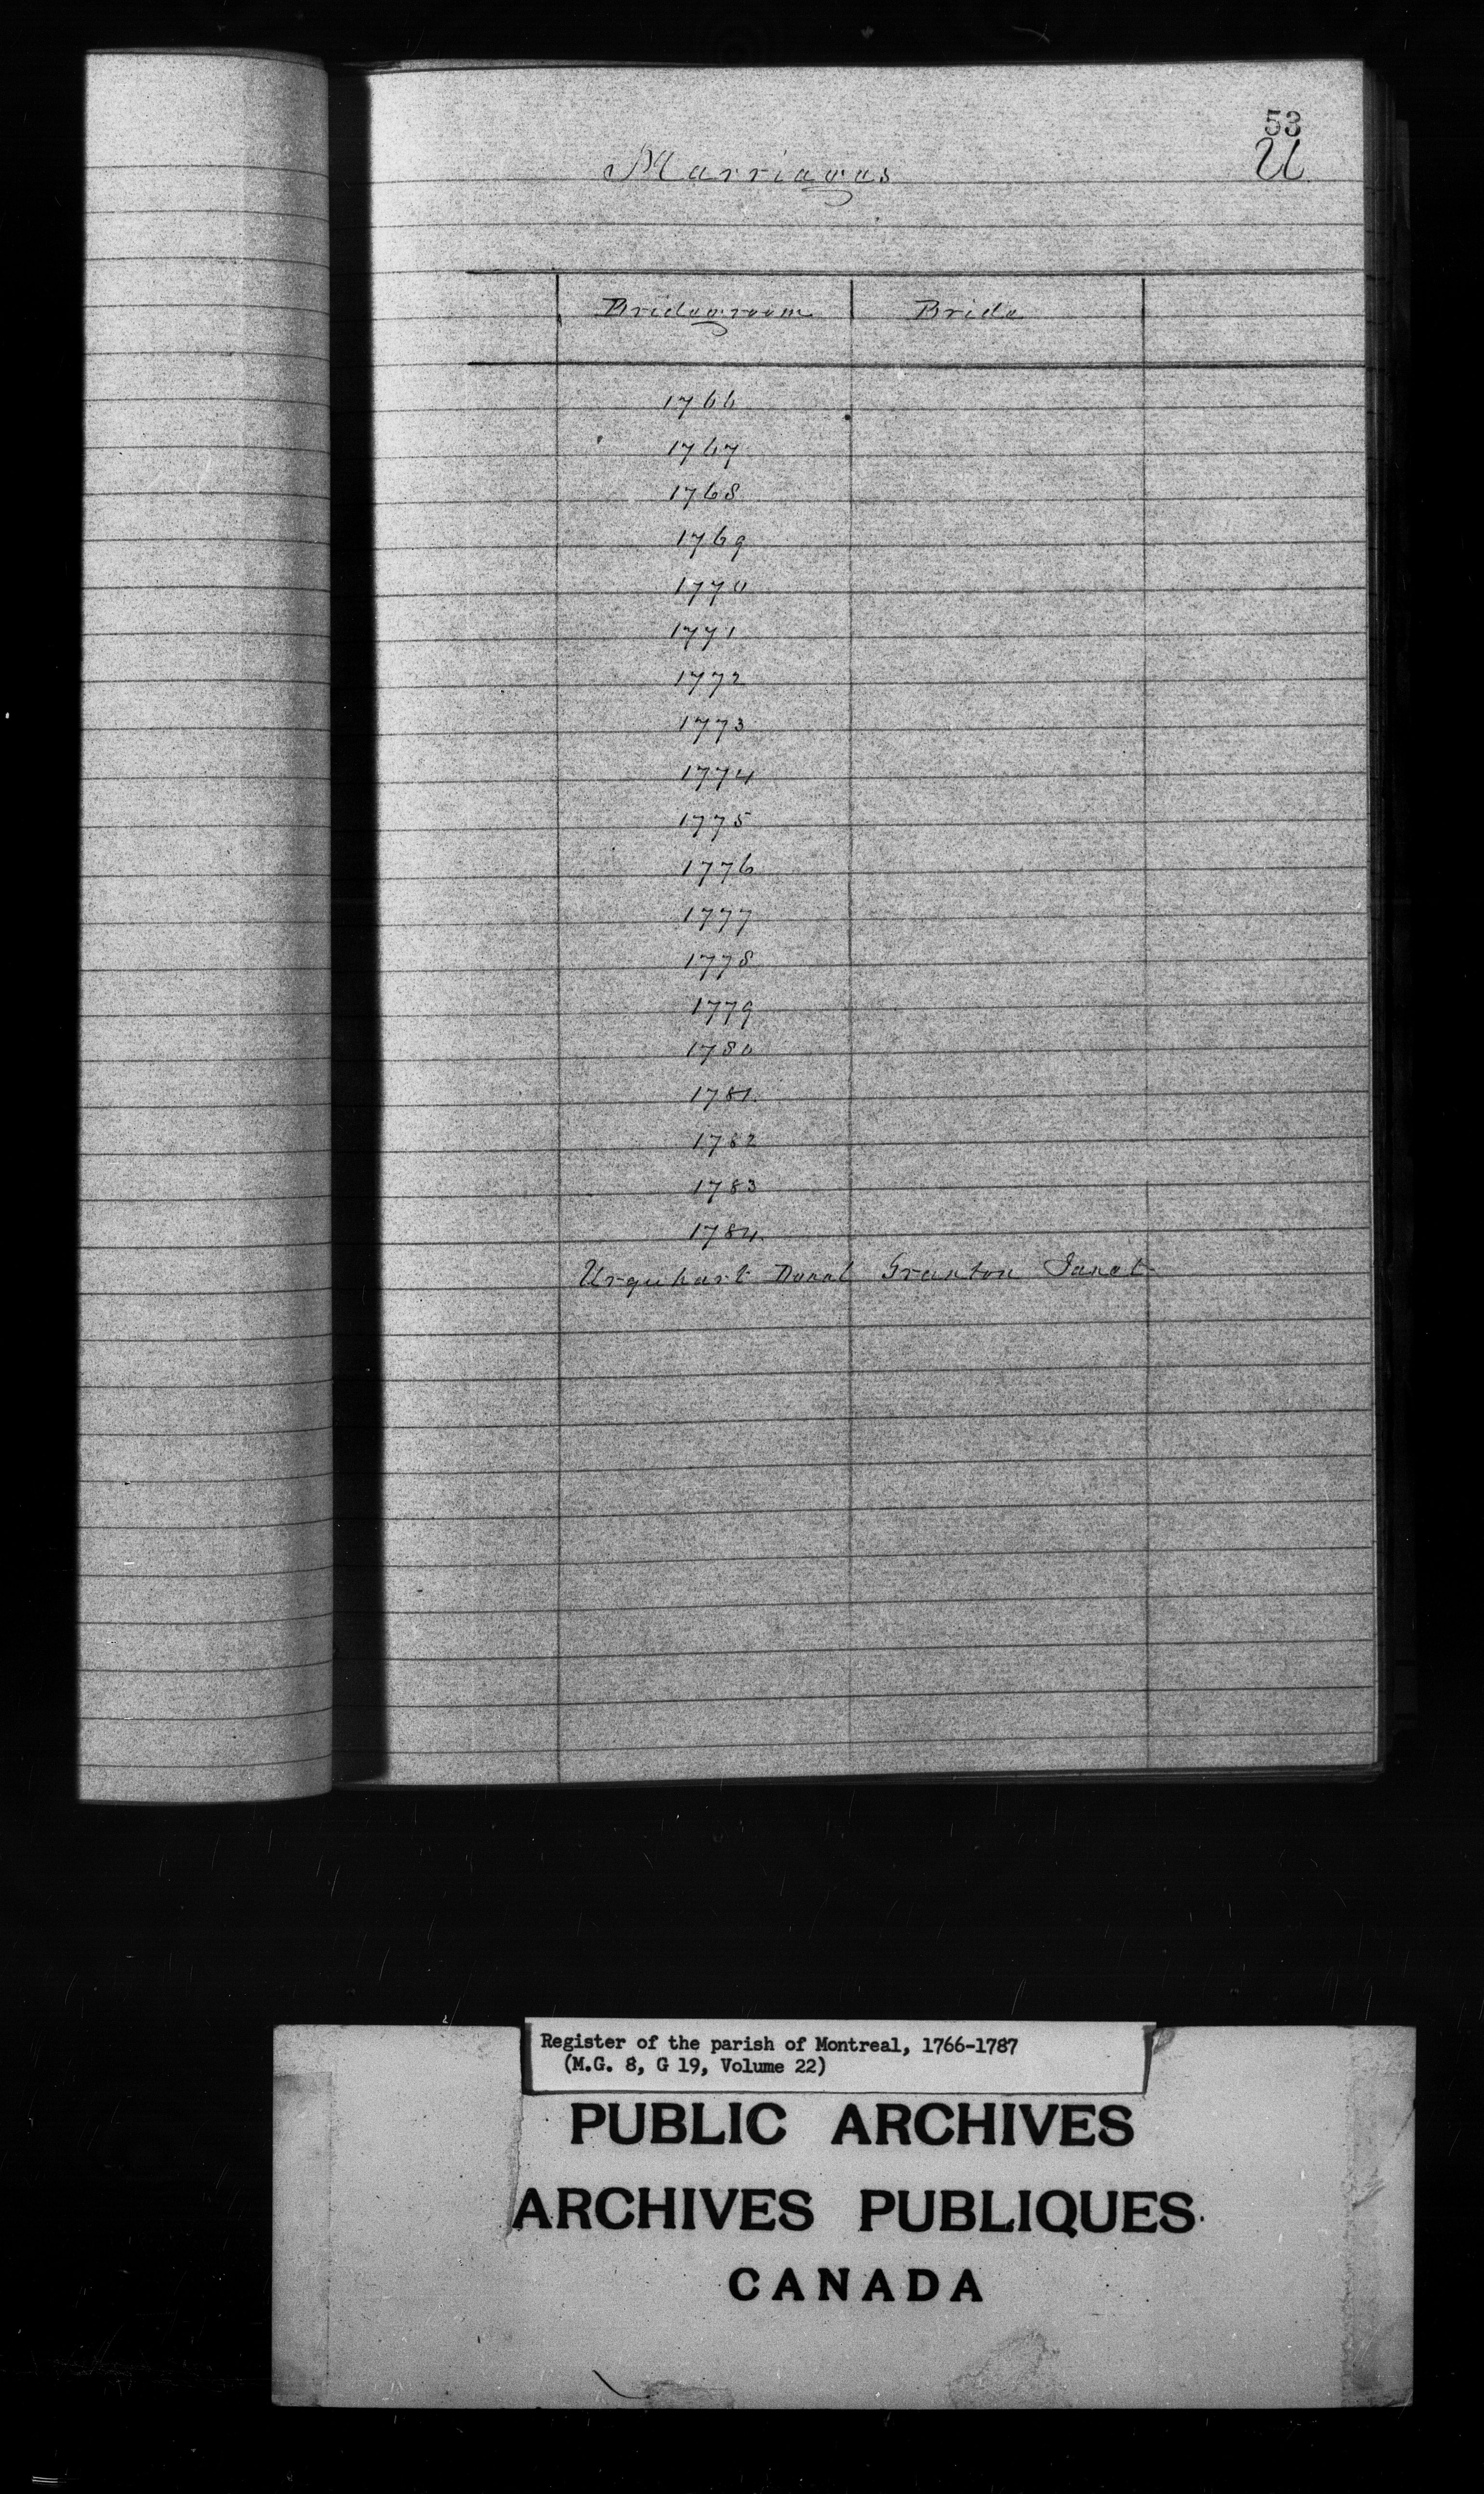 53
U
Marriages
Bridegroom Bride
1766
1767
1768
1769
1770
1771
1772
1773
1774
1775
1776
1777
1778
1779
1780
1781
1782
1783
1784
Urquhart Donal Granton Janet
Register of the parish of Montreal, 1766-1787
(M.G. 8, G 19, Volume 22)
PUBLIC ARCHIVES
ARCHIVES PUBLIQUES
CANADA